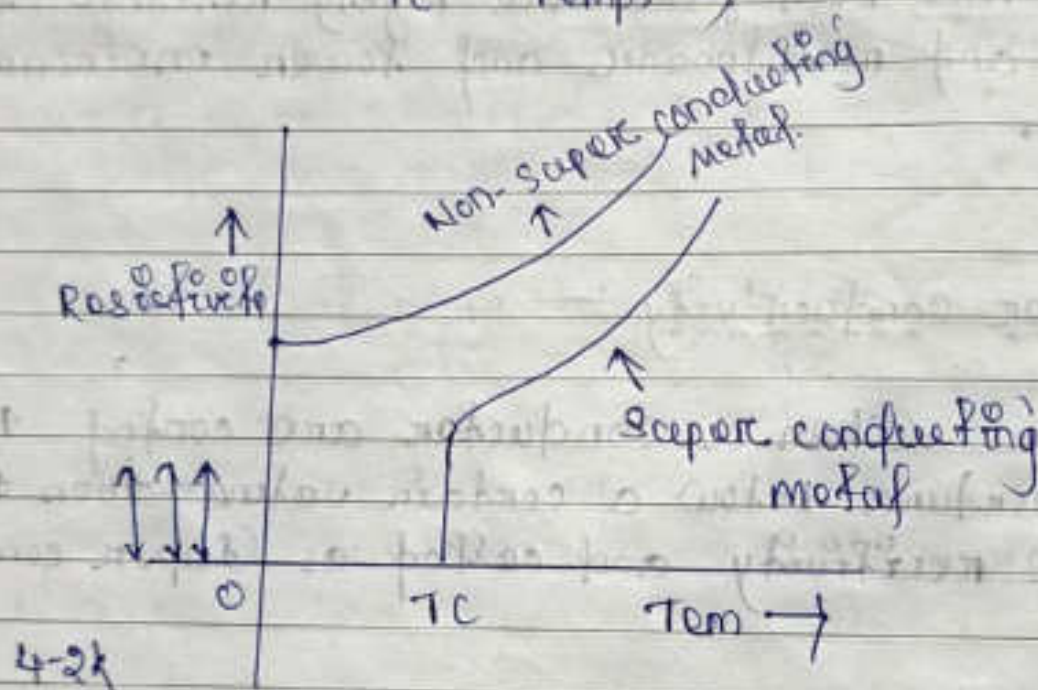 Temps
Non-super conducting
metal.
Resistivity
Super conducting
metal
0
TC
Tem
4-2k